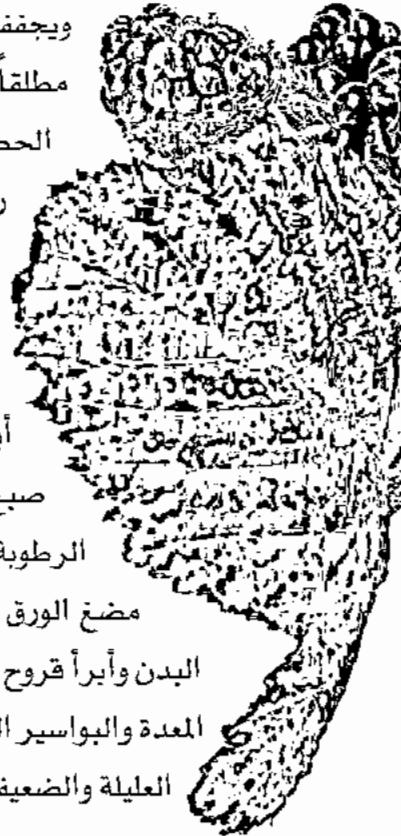 ويجفف
مطلقاً
الحص
ر
أو
صبغ
الرطوبة
مضغ الورق
البدن وأبرأ قروح
المعدة والبواسير ال
العليلة والضعيف